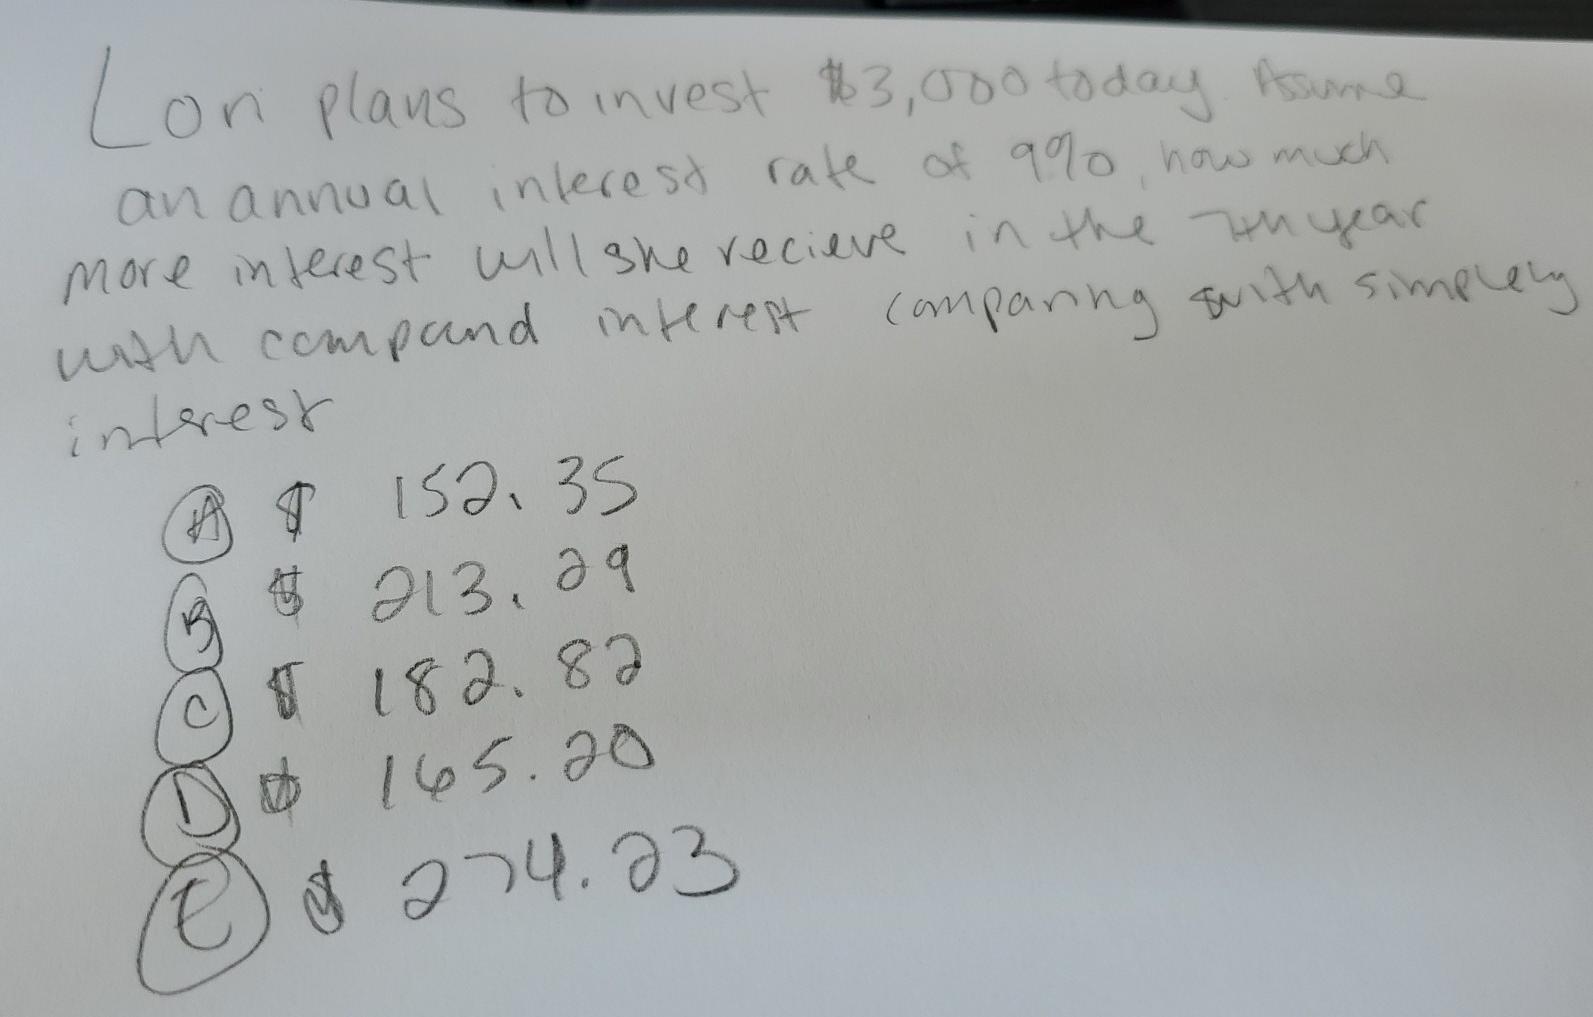 Lori plans to invest $3,000 today. Assume
an annual interest rate of 9%, how much
more interest will she recieve in the 7th year
with compound interest comparing with simplely
interest
A $ 152.35
B $ 213.29
C $ 182.82
D $ 165.20
E $ 274.23